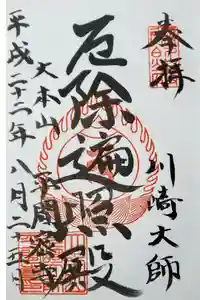 奉拝
川崎大師
厄除遍照殿
大本山
平間寺
平成二十二年八月二十五日